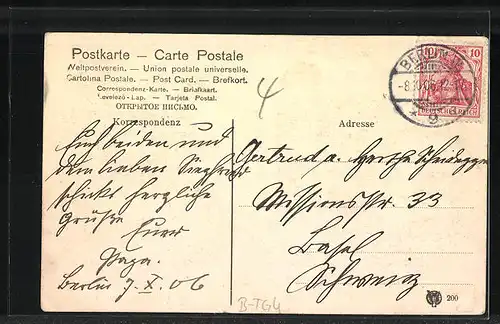 Postkarte — Carte Postale
Weltpostverein. — Union postale universelle.
Cartolina Postale. — Post Card. — Brefkort.
Correspondenz-Karte. — Briefkaart.
Levelező-Lap. — Tarjeta Postal.
ОТКРЫТОЕ ПИСЬМО.
Korrespondenz
Euch beiden und
dem lieben Siegfried
schickt herzliche
Grüße Euer
Papa.
Berlin 7. X. 06
4
10 10
DEUTSCHES REICH
-8.10.06.
* 9
Adresse
Gertrud u.
Missionsstr. 33
Basel
Schweiz
200
B-TG4